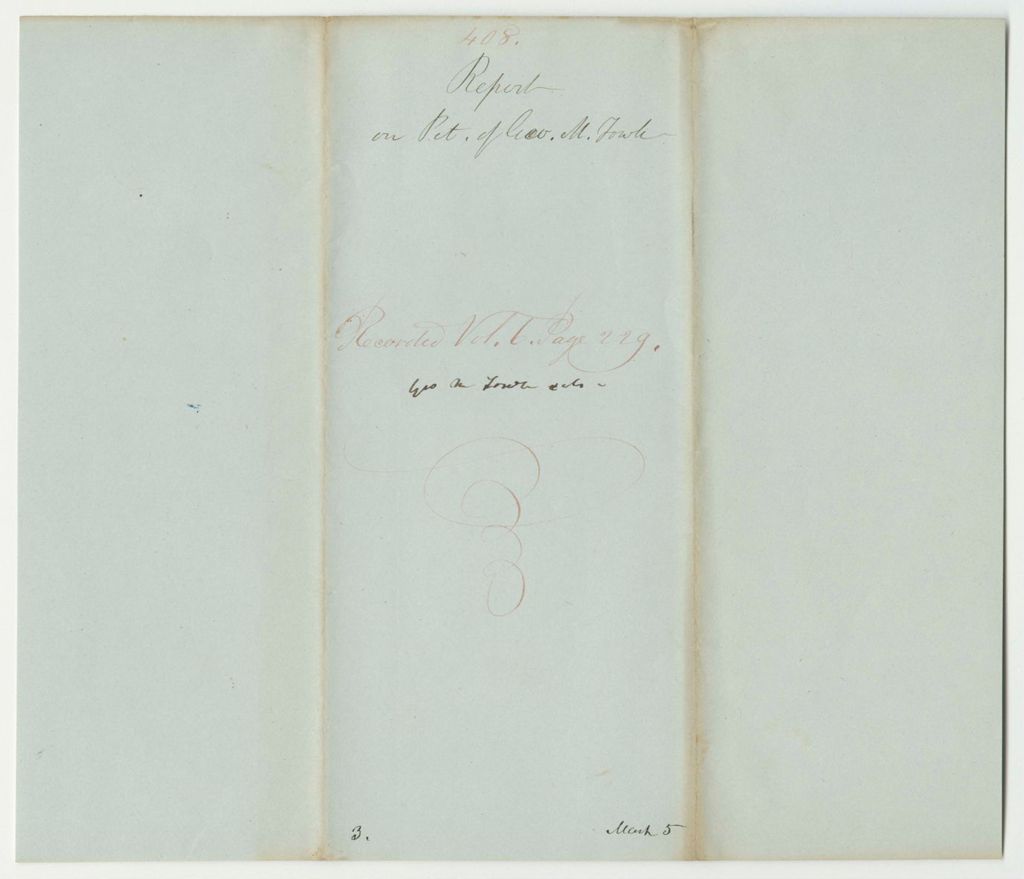 408.
Report
on Pet. of Geo. M. Towle
Recorded Vol. 6. Page 229.
Geo M Towle &als -
3.
March 5